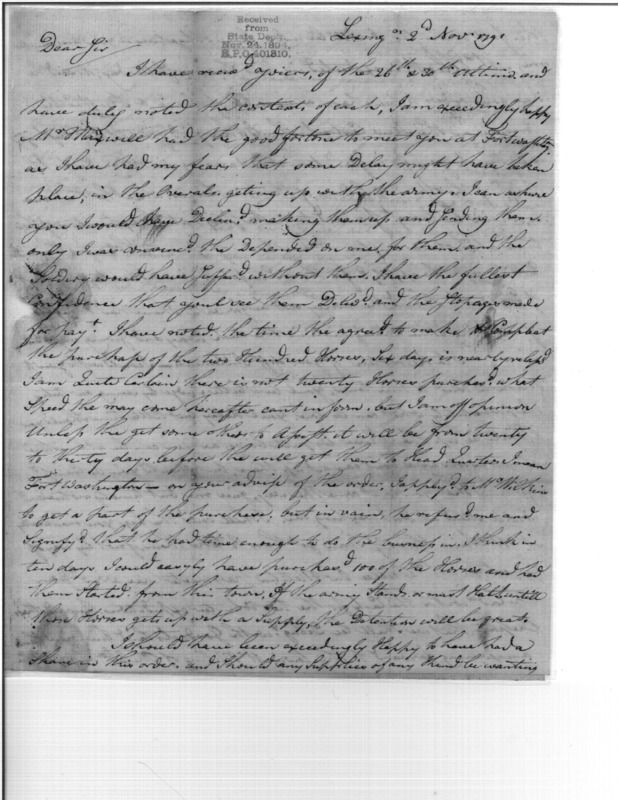 Received
from
State Dep't.
Nov. 24, 1894,
R.P.O. 401810.
Lexingn. 2d Novr 1791
Dear Sir
I have receivd yours, of the 26th & 30th Ultimo and
have duley noted the contents of each, I am exceedingly happy
Mr. will had the good fortune to meet you at Fort
as I have had my fears that some Delay might have taken
place, in the Overals geting up with the army. I can ashure
you I would have Declin'd making them up and sending them.
only I was convenc'd the Depended on me, for them. and the
Soldiery would have Suffer'd without them. I have the fullest
Confidence that youl see them Deliv'd. and the Stopages made
for payt. I have noted. the time the agree'd to make Compleat
the purchase of the two Hundred Horses, Six days is near
I am Quite Certain there is not twenty Horses purchas'd. what
Speed the may come hereafter cant inform. but I am off opinion
Unless the get some others to assist. it will be from twenty
to thirty days before the will get them to Head Quarters I mean
Fort Washington — on your advise of the order, Apply'd to Mr.
to get a part of the purchase. but in vain, he refus'd me and
Signify'd that he had time enough to do the business in. I think in
ten days I could easyly have purchas'd 100 of the Horses and had
them Started from this town. If the army Stands or must Halt untill
these Horses gets up with a Supply, the Detention will be great.
I should have been exceedingly Happy to have had a
Share in this order. and Should any Supplies of any kind be wanting